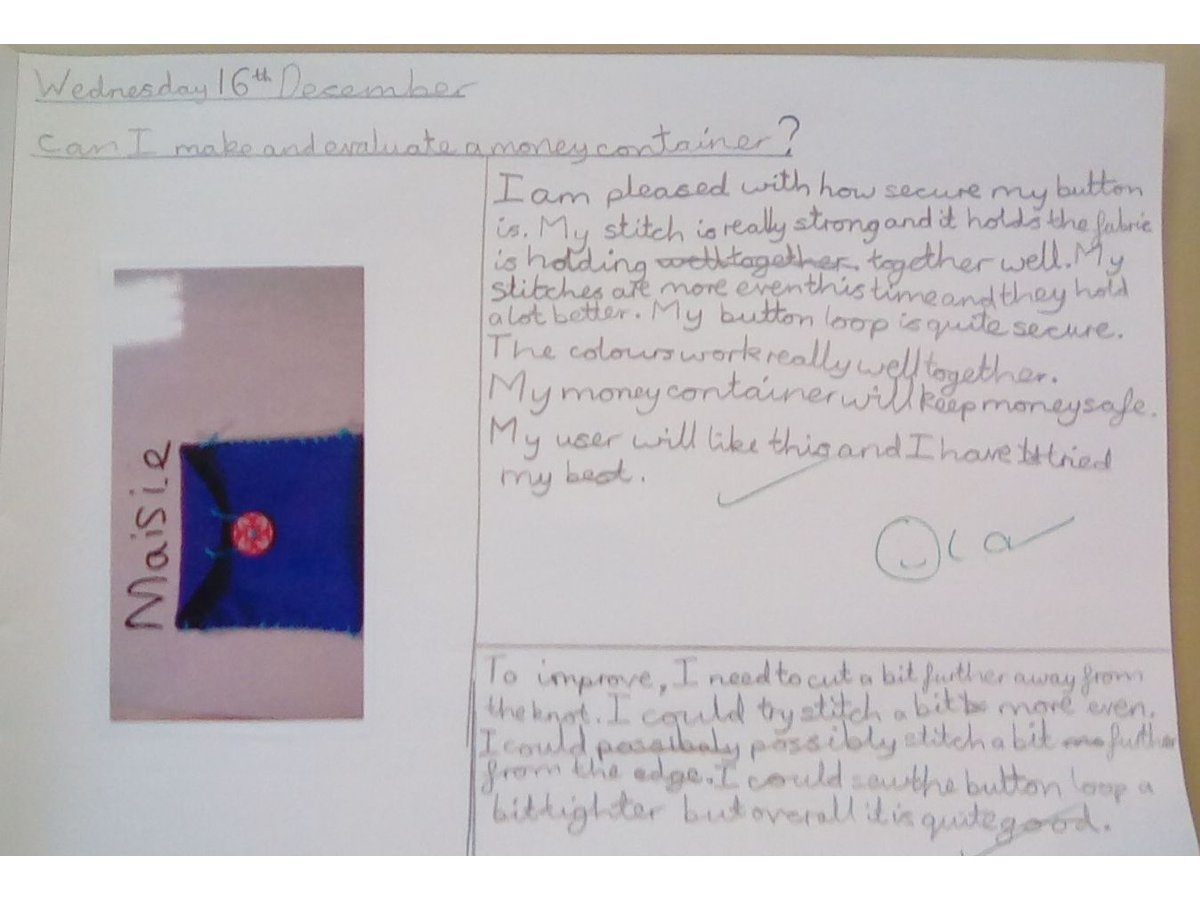 Wednesday 16th December
Can I make and evaluate a money container?
Maisie
I am pleased with how secure my button
is. My stitch is really strong and it holds the fabric
is holding well together. together well. My
stitches are more even this time and they hold
a lot better. My button loop is quite secure.
The colours work really well together.
My money container will keep money safe.
My user will like this and I have tried
my best.
To improve, I need to cut a bit further away from
the knot. I could try stitch a bit more even.
I could possibaly possibly stitch a bit further
from the edge. I could sew the button loop a
bit tighter but overall it is quite good.